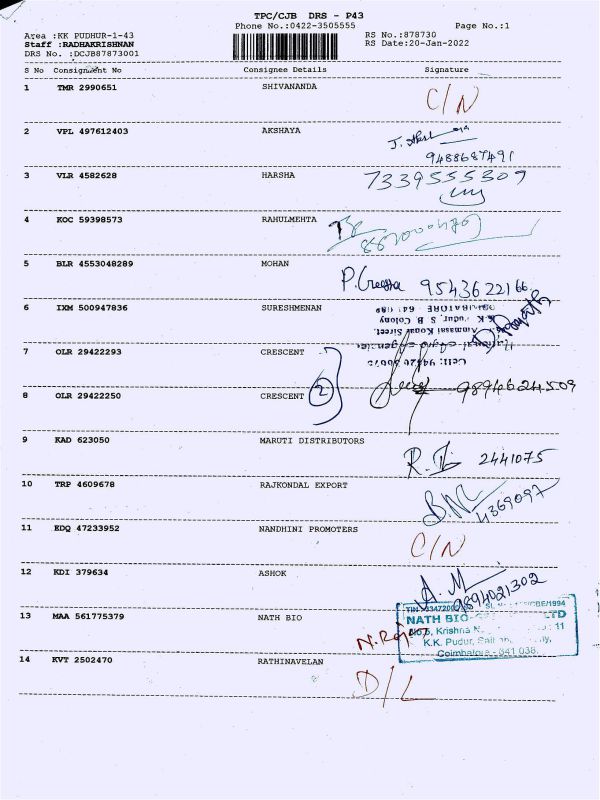 TPC/CJB DRS - P43
Phone No.:0422-3505555 Page No.:1
Area :KK PUDHUR-1-43 RS No.:878730
Staff :RADHAKRISHNAN RS Date:20-Jan-2022
DRS No. :DCJB87873001
S No Consignment No Consignee Details Signature
1 TMR 2990651 SHIVANANDA C/N
2 VPL 497612403 AKSHAYA
9488687491
3 VLR 4582628 HARSHA 7339555309
4 KOC 59398573 RAHULMEHTA
5 BLR 4553048289 MOHAN 9543622166
6 IXM 500947836 SURESHMENAN
COIMBATORE
K.K. Pudur, S B Colony
Ammasai Konar Street,
7 OLR 29422293 CRESCENT
Cell:
8 OLR 29422250 CRESCENT 2 9894624509
9 KAD 623050 MARUTI DISTRIBUTORS
2441075
10 TRP 4609678 RAJKONDAL EXPORT
4369097
11 EDQ 47233952 NANDHINI PROMOTERS C/N
12 KDI 379634 ASHOK A.M
9894021302
13 MAA 561775379 NATH BIO
NATH BIO LTD
No.5, Krishna 11
K.K. Pudur,
Coimbatore - 641 038.
14 KVT 2502470 RATHINAVELAN D/L